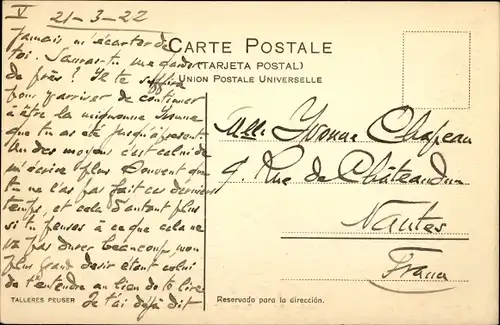 V 21-3-22
Jamais m'écarter de
toi. Sauras-tu me garder
de près? Il te suffira
pour y arriver de continuer
à être la mignonne Yvonne
que tu as été jusqu'à présent
Un des moyens c'est celui de
m'écrire plus souvent que
tu ne l'as pas fait ces derniers
temps, et cela d'autant plus
si tu penses à ce que cela ne
va pas durer beaucoup, mon
plus grand désir étant celui
de t'entendre au lieu de te lire
Je t'ai déjà dit
TALLERES PEUSER
CARTE POSTALE
(TARJETA POSTAL)
UNION POSTALE UNIVERSELLE
Mlle Yvonne Chapeau
9. Rue de Châteaudun
Nantes
France
Reservado para la dirección.